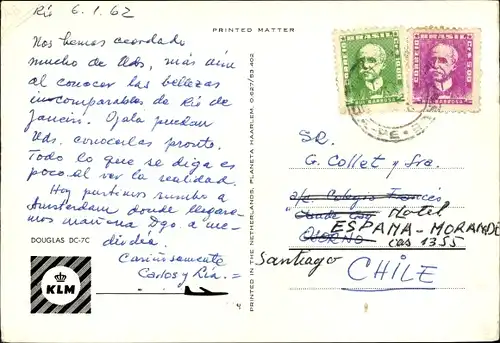 Río 6.1.62
PRINTED MATTER
Nos hemos acordado
mucho de Uds, más aún
al conocer las bellezas
incomparables de Río de
Janeiro. Ojalá puedan
Uds. conocerlas pronto.
Todo lo que se diga es
poco al ver la realidad.
Hoy partimos rumbo a
Amsterdam donde llegare-
mos mañana Dgo. a me-
dio día.
Cariñosamente
Carlos y Lía.=
DOUGLAS DC-7C
KLM
PRINTED IN THE NETHERLANDS, PLANETA HAARLEM. O-627/59.402
CORREIO BRASIL
RUI BARBOSA
CORREIO BRASIL
Cr$ 5,00
RUI BARBOSA
SR.
G. Collet y Sra.
a/c. Colegio Francés
OSORNO
Hotel
ESPAÑA-MORANDE
1355
Santiago
CHILE